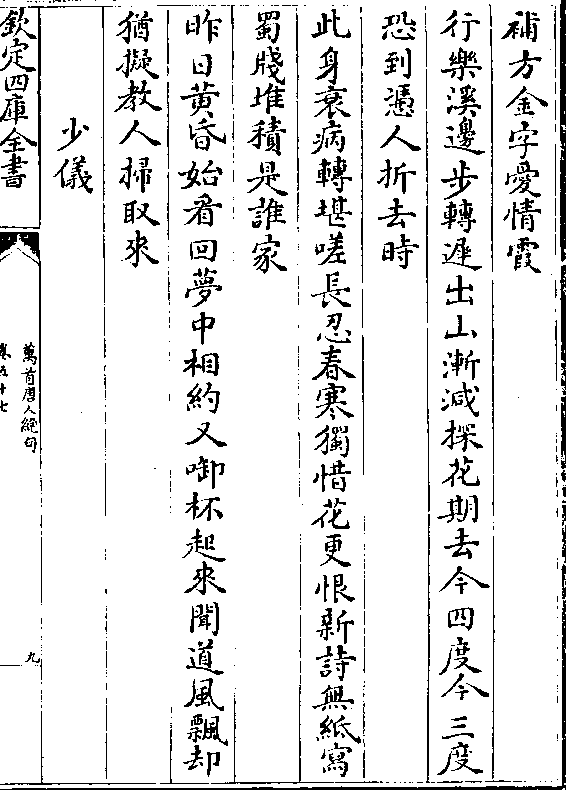 補方金字愛情霞
行樂溪邊步轉遲出山漸減探花期去今四度今三度
恐到憑人折去時
此身衰病轉堪嗟長忍春寒獨惜花更恨新詩無紙寫
蜀牋堆積是誰家
昨日黄昏始看回夢中相約又啣杯起來聞道風飄却
猶擬教人掃取來
少儀
欽定四庫全書
萬首唐人絶句
卷五十七
九